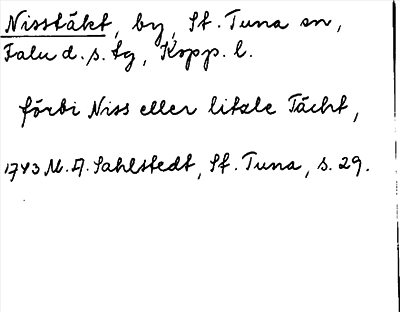 Nisstäkt, by, St. Tuna sn,
Falu d. s. tg, Kopp. l.
förbi Niss eller litzle Tächt,
1743 M. A. Sahlstedt, St. Tuna, s. 29.